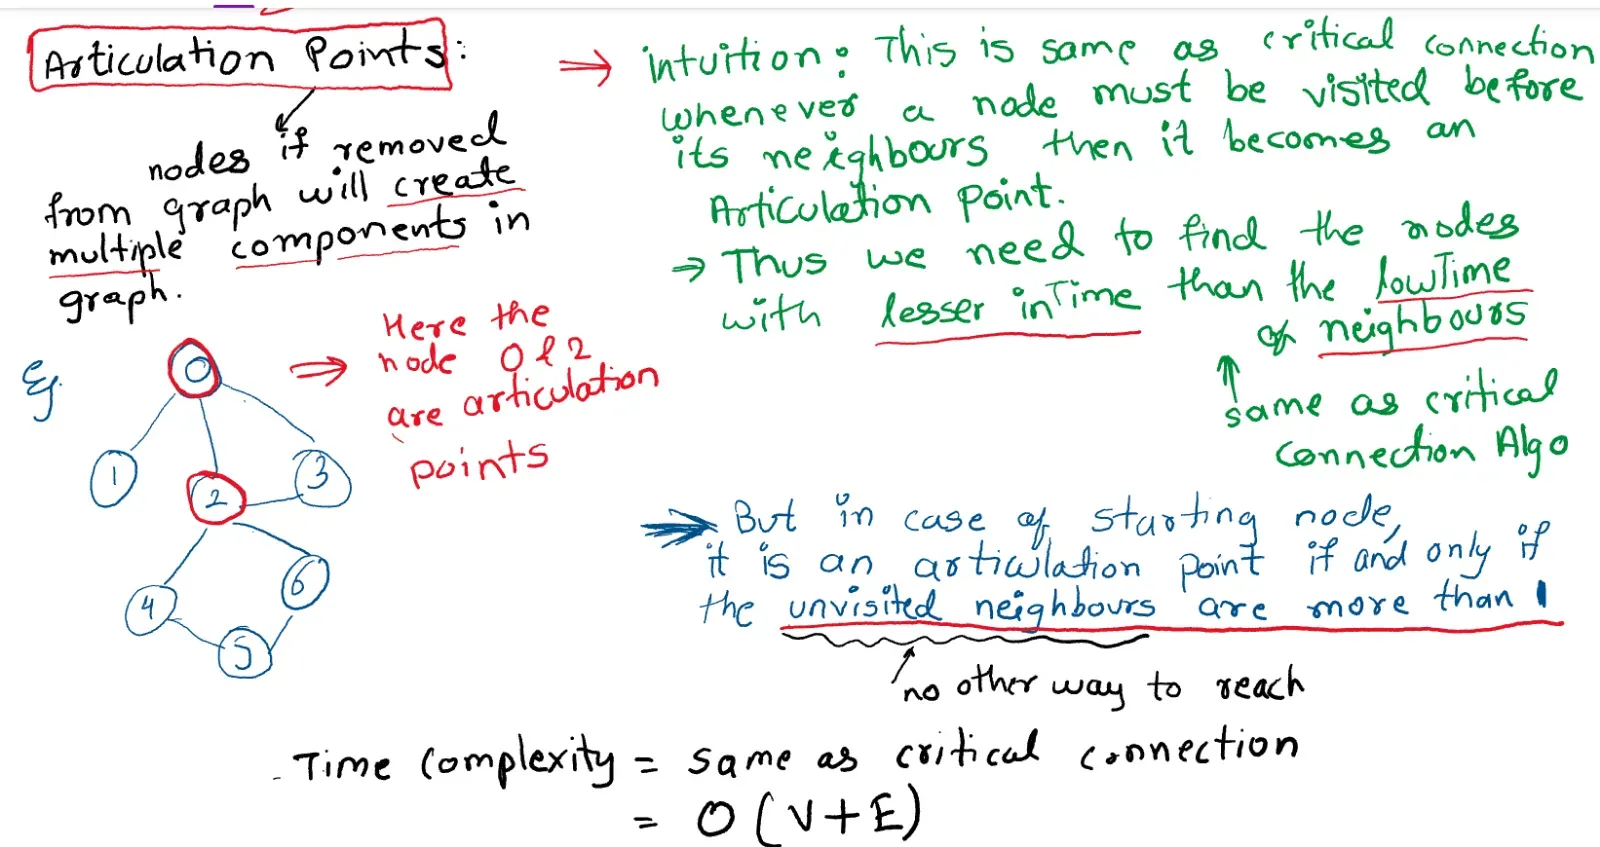 Articulation Points:
nodes if removed
from graph will create
multiple components in
graph.
Eg.
0
1
2
3
4
5
6
Here the
node 0 & 2
are articulation
points
intuition: This is same as critical connection
whenever a node must be visited before
its neighbours then it becomes an
Articulation Point.
Thus we need to find the nodes
with lesser inTime than the lowTime
of neighbours
same as critical
Connection Algo
But in case of starting node,
it is an articulation point if and only if
the unvisited neighbours are more than 1
no other way to reach
Time Complexity = same as critical connection
= O(V+E)